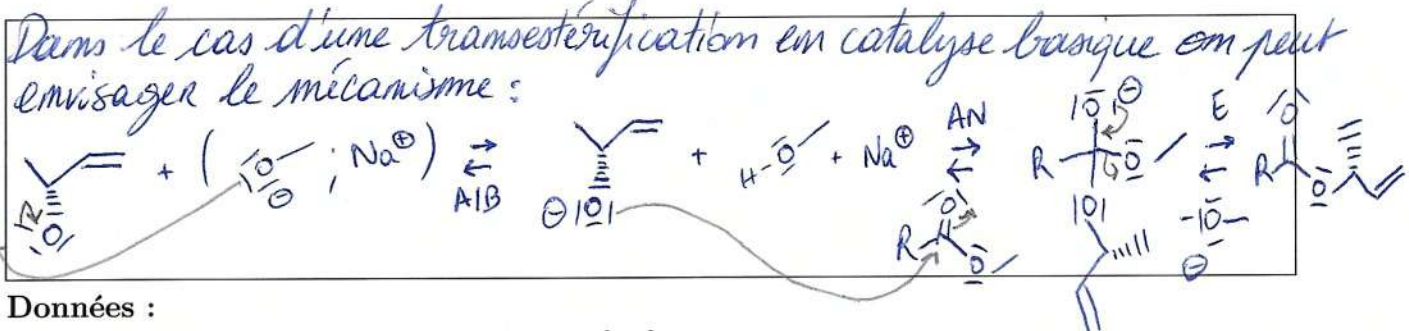 Dans le cas d'une transestérification en catalyse basique on peut
envisager le mécanisme :
+ ( O ⊖ ; Na⊕ ) ⇌ A/B ⊖ |O| + H-O + Na⊕ ⇌ AN |O|⊖ R O |O| ⇌ E |O| R O
R O O -|O- ⊖
Données :